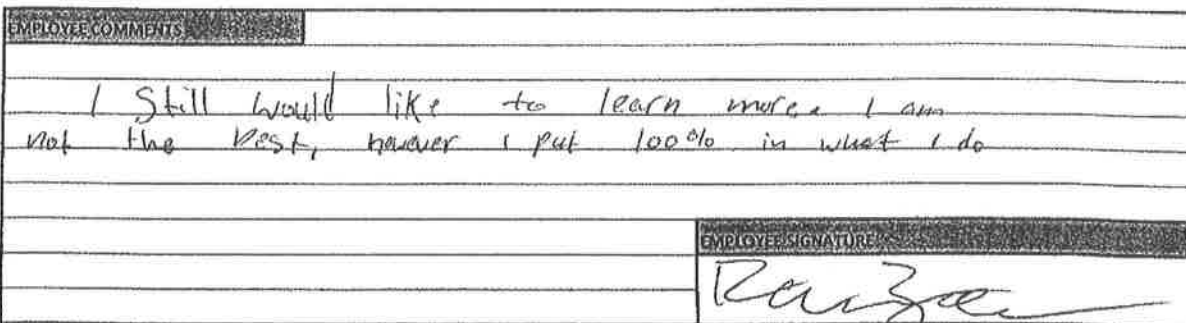 EMPLOYEE COMMENTS
I Still would like to learn more. I am
not the best, however I put 100% in what I do
EMPLOYEE SIGNATURE